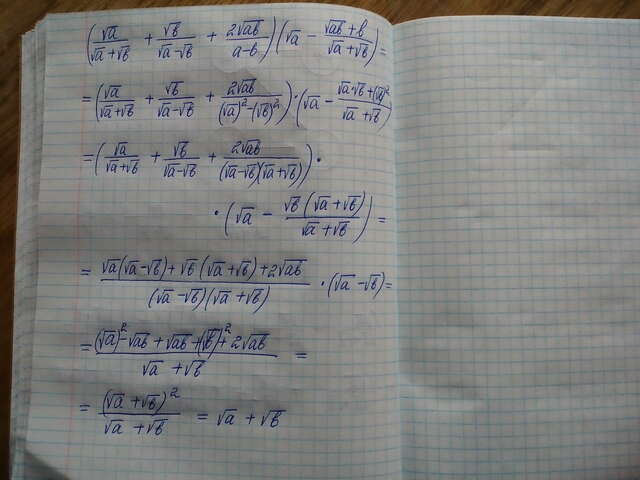 (√a/(√a+√b) + √b/(√a-√b) + 2√ab/(a-b))(√a - (√ab+b)/(√a+√b))=
=(√a/(√a+√b) + √b/(√a-√b) + 2√ab/((√a)²-(√b)²))·(√a - (√a·√b+(√b)²)/(√a+√b))
=(√a/(√a+√b) + √b/(√a-√b) + 2√ab/((√a-√b)(√a+√b)))·
·(√a - √b(√a+√b)/(√a+√b))=
= (√a(√a-√b)+√b(√a+√b)+2√ab)/((√a-√b)(√a+√b)) ·(√a-√b)=
= ((√a)²-√ab+√ab+(√b)²+2√ab)/(√a+√b) =
= (√a+√b)²/(√a+√b) = √a+√b